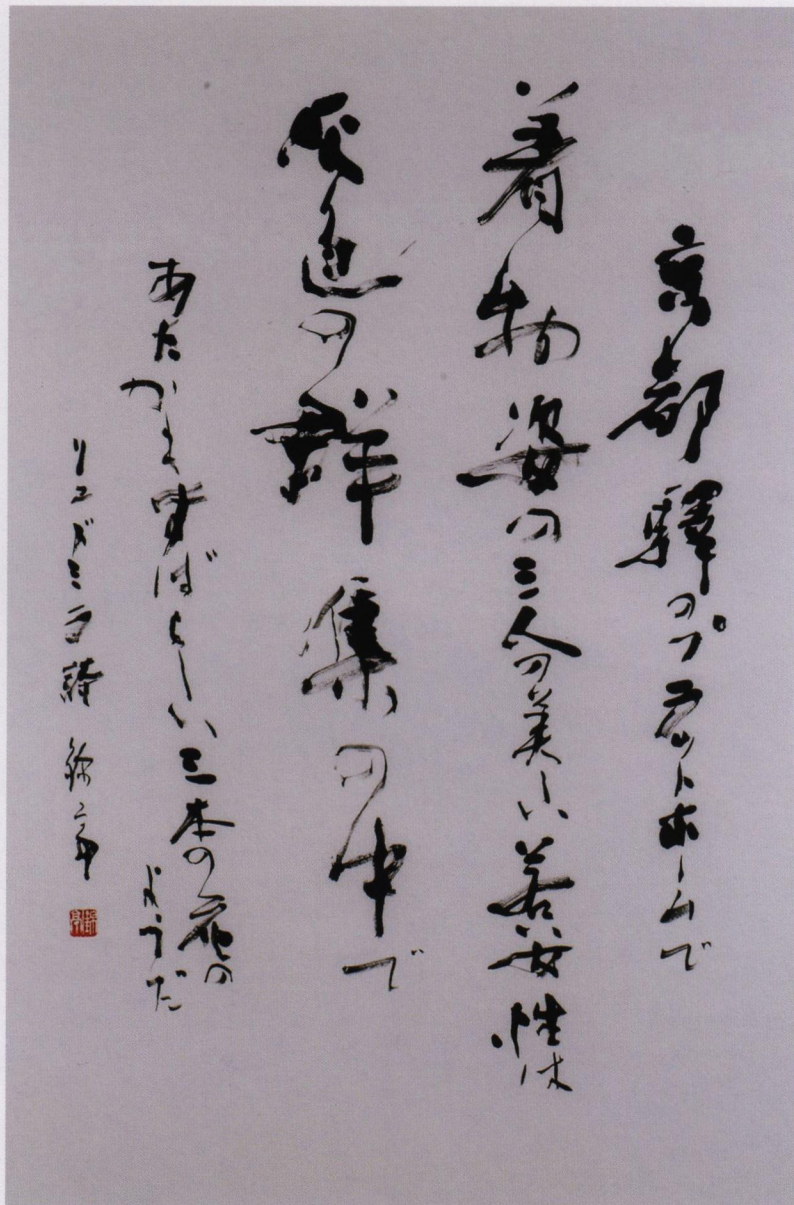 京都驛のプラットホームで
着物姿の三人の美しい若い女性は
灰色の群集の中で
あたかもすばらしい三本の花の
ようだ
リュドミラ詩